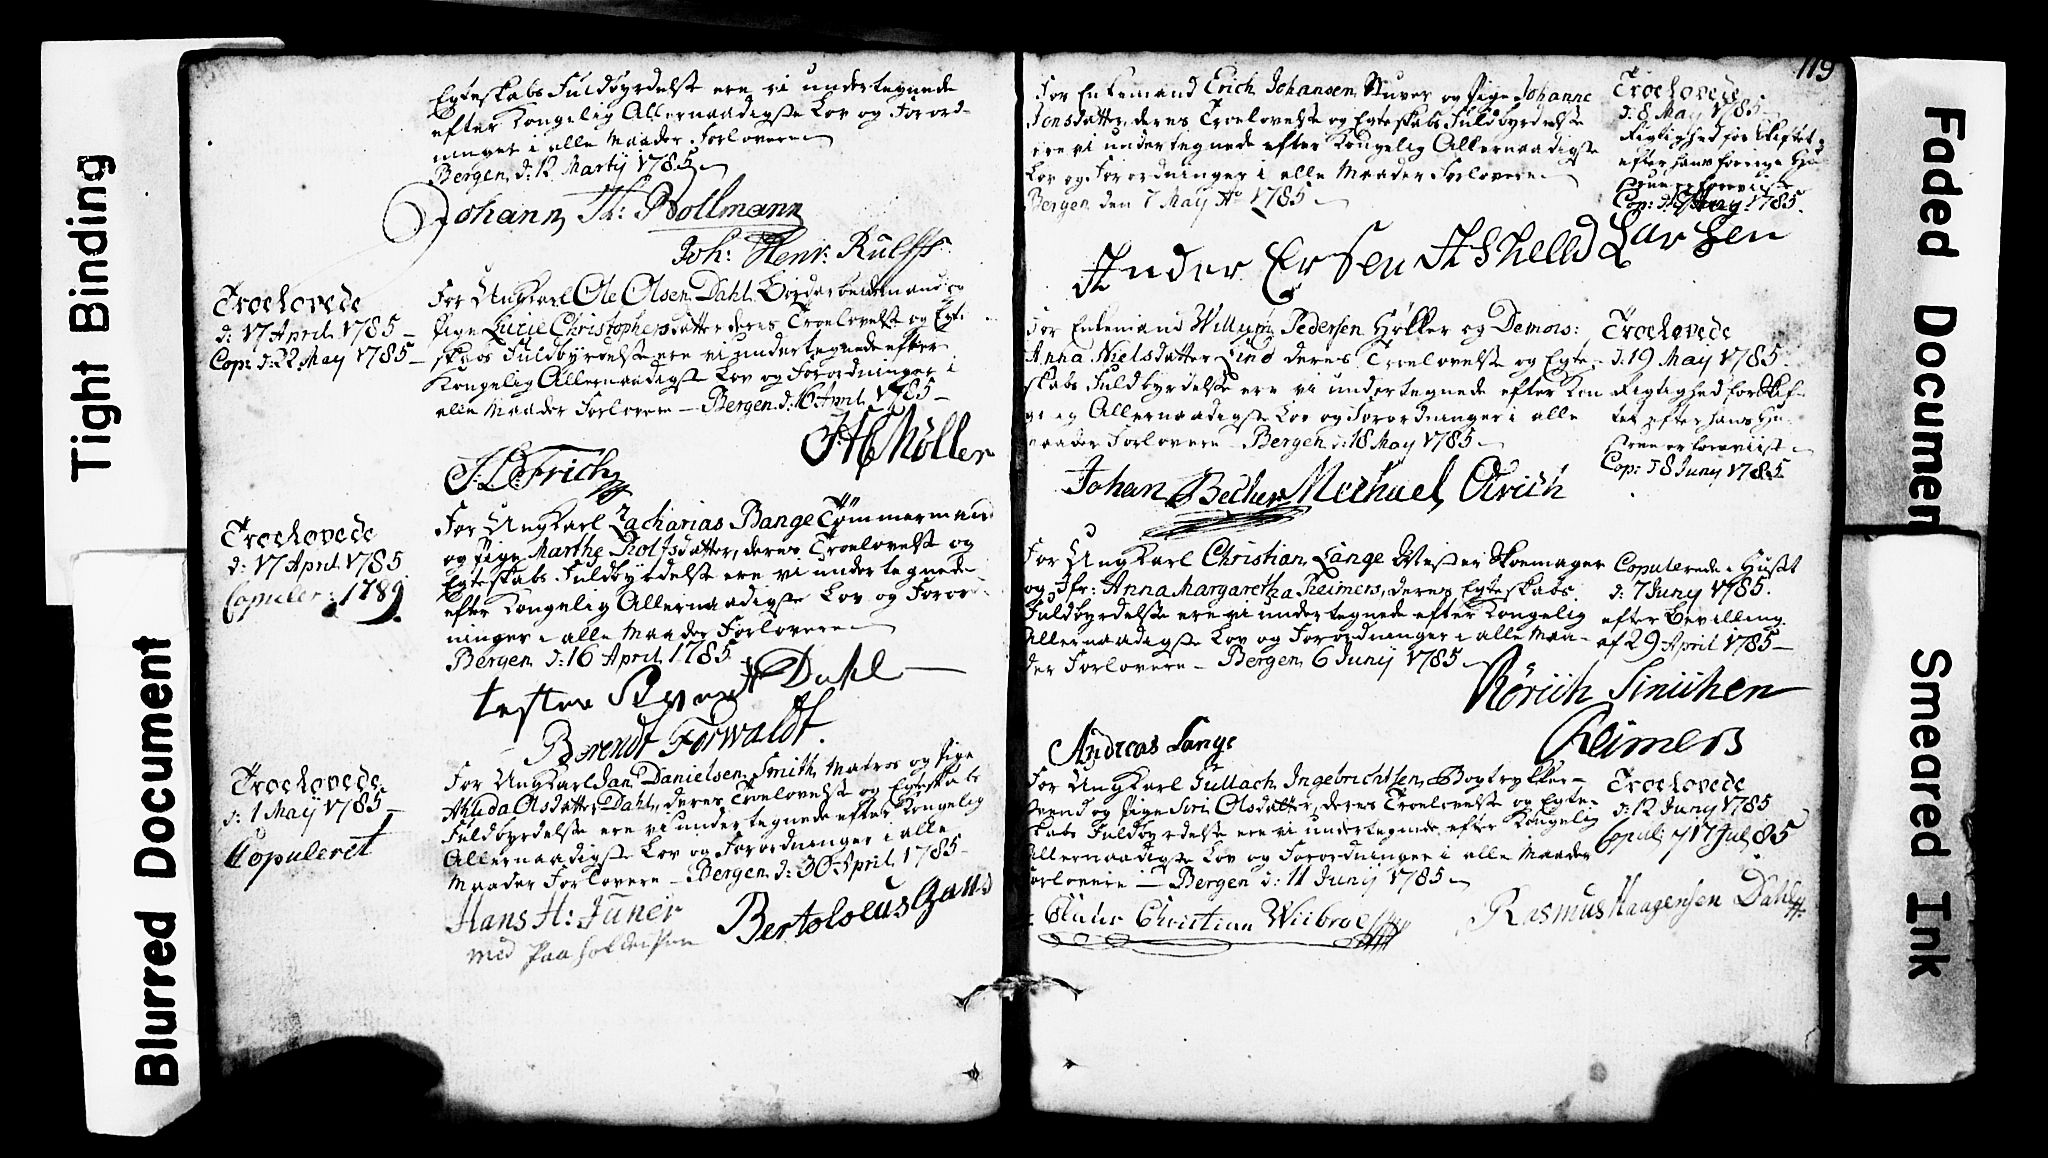 Tight Binding
Blurred Document
Egteskabs Fuldbyrdelse ere vi undertegnede
efter Kongelig Allernaadigste Lov og Forord-
ninger i alle Maader Forlovere
Bergen d: 12 Martij 1785
Johann Th: Bollmann
Joh: Henr: Rulffs
Troelovede
d: 17 April 1785
Cop: d: 22 May 1785
For Ungkarl Ole Olsen Dahl Bordarbeidermand og
Pige Lucie Christophersdatter deres Troelovelse og Egte-
skabs Fuldbyrdelse ere vi undertegnede efter
Kongelig Allernaadigste Lov og Forordninger i
alle Maader Forlovere - Bergen d: 16 April 1785
JHC Møller
Frich
Troelovede
d: 17 April 1785
Copuler: 1789.
For Ungkarl Zacharias Bange Tømmermand
og Pige Marthe Rolfsdatter, deres Troelovelse og
Egteskabs Fuldbyrdelse ere vi undertegnede
efter Kongelig Allernaadigste Lov og Forord-
ninger i alle Maader Forlovere
Bergen d: 16 April 1785
Dahl
Berendt Forwaldt.
Troelovede
d: 1 Maij 1785
Copuleret
For Ungkarl Jan Danielsen Smith Matros og Pige
Ahlida Olsdatter Dahl, deres Troelovelse og Egteskabs
Fuldbyrdelse ere vi undertegnede efter Kongelig
Allernaadigste Lov og Forordninger i alle
Maader Forlovere - Bergen d: 30 April 1785
Hans H: Juner
med Paaholden Pen
119
For Enkemand Erich Johansen Stuver og Pige Johanne
Jonsdatter, deres Troelovelse og Egteskabs Fuldbyrdelse
ere vi undertegnede efter Kongelig Allernaadigste
Lov og Forordninger i alle Maader Forlovere
Bergen den 7 May Ao 1785
Troelovede
d: 8 May 1785
Rigtighed for Skiftet
efter hans forrige Hu-
strue er foreviist
Cop: 1785.
Larsen
For Enkemand Willum Pedersen Høkker og Demois:
Anna Nielsdatter Lind deres Troelovelse og Egte-
skabs Fuldbyrdelse ere vi undertegnede efter Kon
gelig Allernaadigste Lov og Forordninger i alle
Maader Forlovere - Bergen d: 18 May 1785
Troelovede
d: 19 May 1785
Rigtighed for Skif-
tet efter hans Hu-
strue er foreviist
Cop: d 8 Juny 1785
Johan Becker Michael Olrich
For Ungkarl Christian Lange Mester Skoemager
og Jfr: Anna Margaretha Reimers, deres Egteskabs
Fuldbyrdelse ere vi undertegnede efter Kongelig
Allernaadigste Lov og Forordninger i alle Maa-
der Forlovere - Bergen 6 Junij 1785
Copulerede i Huset
d: 7 Juny 1785.
efter Bevilling
af 29 April 1785
Reimers
Andreas Lange
For Ungkarl Tullach Ingebrichtsen, Bogtrykker-
svend og Pige Siri Olsdatter, deres Troelovelse og Egte-
skabs Fuldbyrdelse ere vi undertegnede efter Kongelig
Allernaadigste Lov og Forordninger i alle Maader
Forlovere - Bergen d: 11 Junij 1785
Troelovede
d: 12 Juny 1785
Copul: 17 Jul 85
Christian Wiibroe
Rasmus Haagensen Dahl
Faded Documen
Smeared Ink